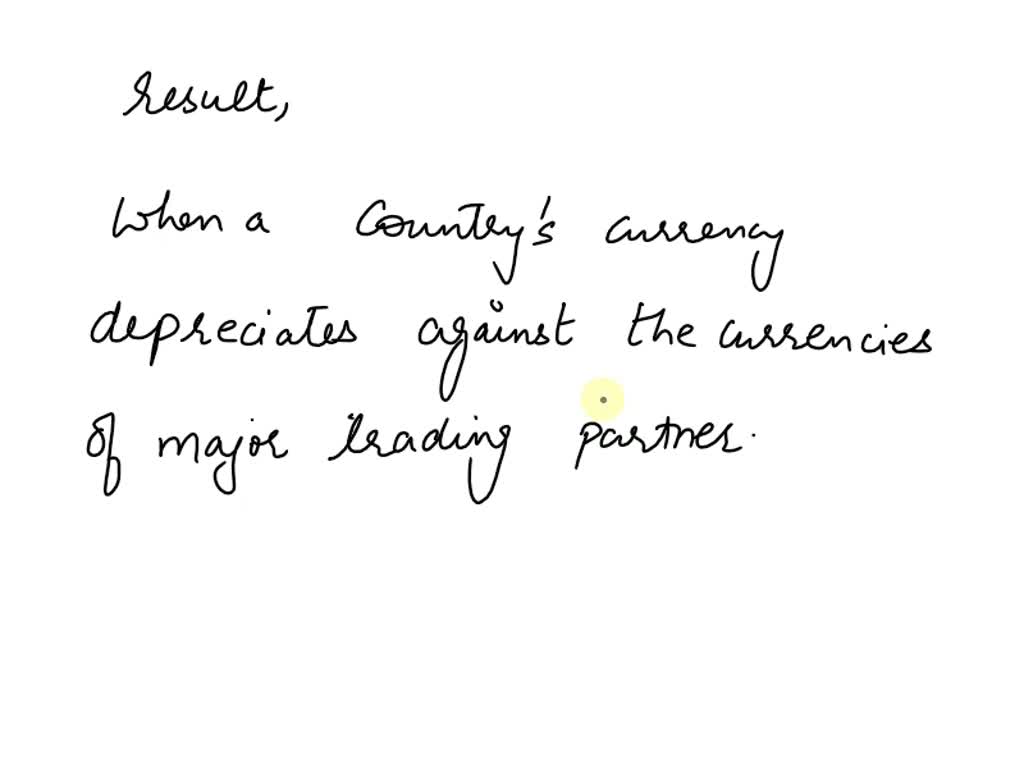 result,
When a Country's currency
depreciates against the currencies
of major trading partner.